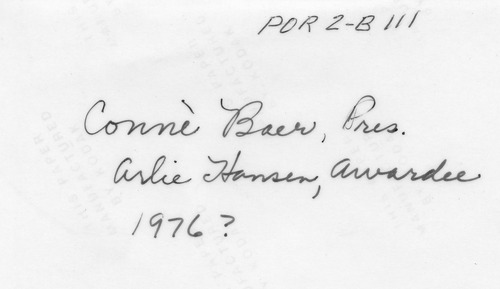 POR 2-B 111
Connie Baer, Pres.
Arlie Hansen, Awardee
1976?